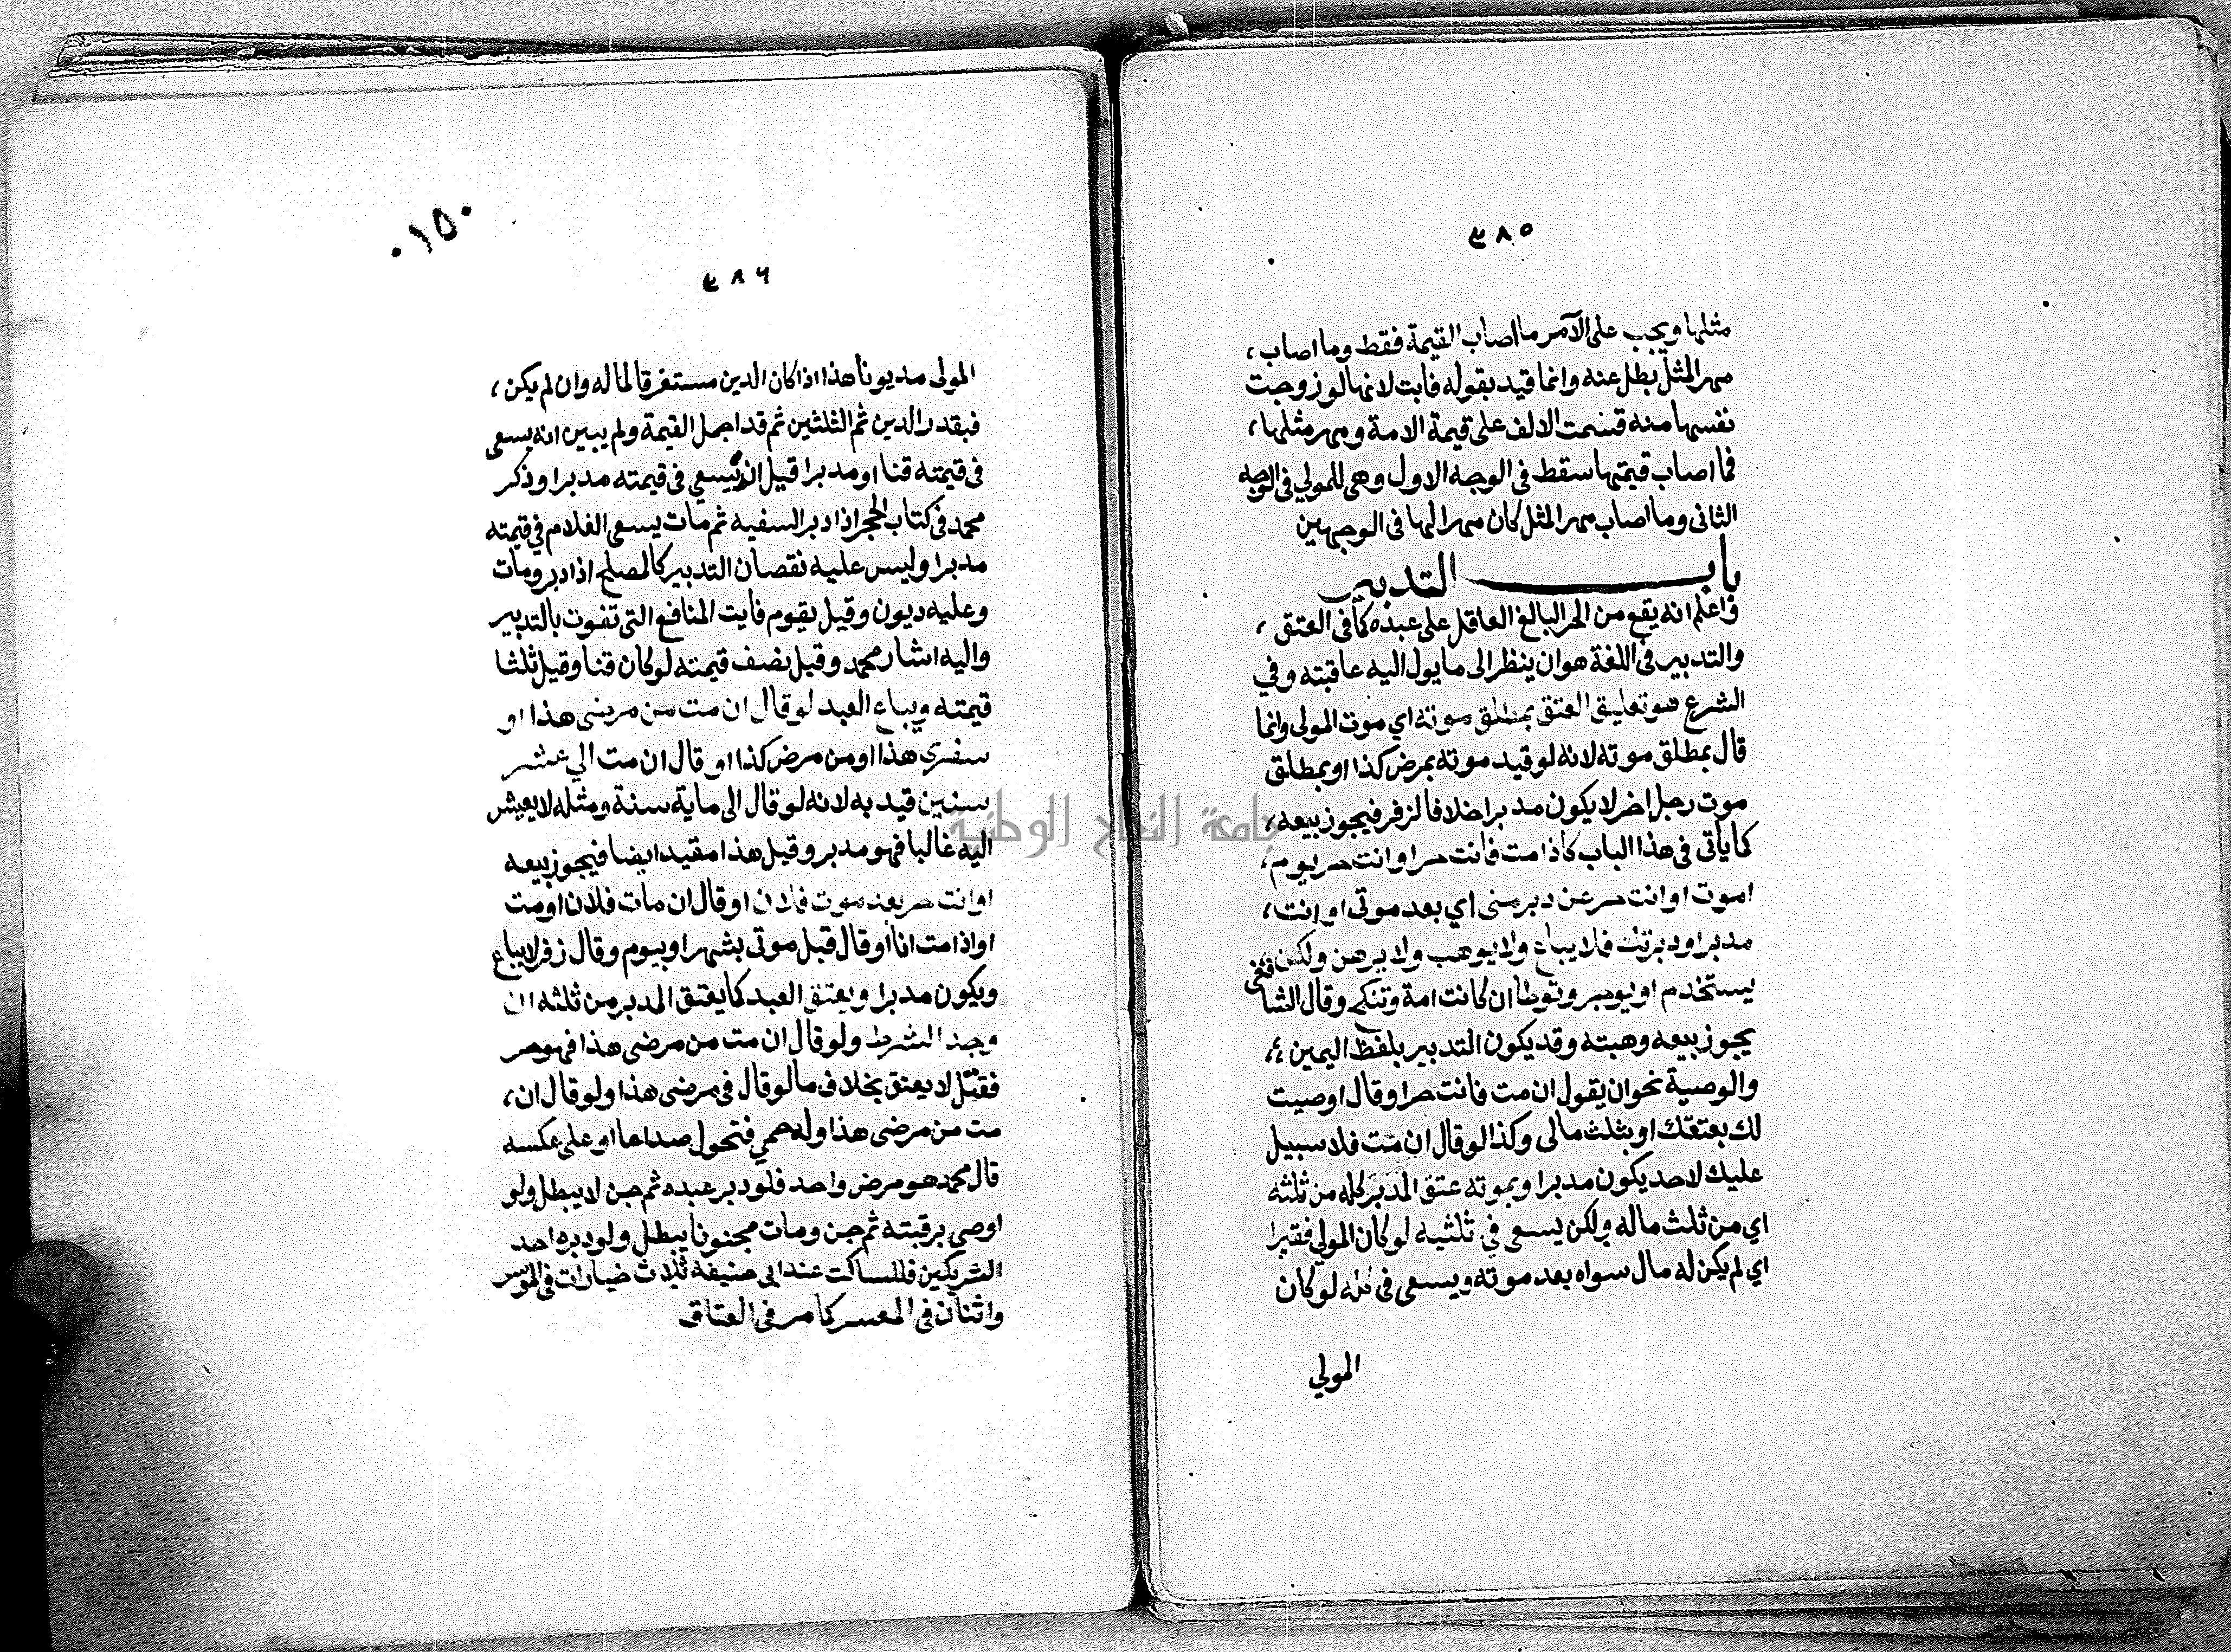 ٣٨٥
مثلها ويجب على الآمر ما اصاب القيمة فقط وما اصاب،
مهر المثل بطل عنه وانما قيد بقوله فابت لانها لو زوجت
نفسها منه قسمت الالف على قيمة الامة ومهر مثلها،
فما اصاب قيمتها سقط في الوجه الاول وهي للمولي في الوجه
الثاني وما اصاب مهر المثل كان مهرا لها في الوجهين
باب التدبير
واعلم انه يقع من الحر البالغ العاقل على عبده كما في العتق،
والتدبير في اللغة هو ان ينظر الى ما يول اليه عاقبته وفي
الشرع هو تعليق العتق بمطلق موته اي موت المولى وانما
قال بمطلق موته لانه لو قيد موته بمرض كذا او بمطلق
موت رجل اخر لا يكون مدبرا خلافا لزفر فيجوز بيعه،
كما ياتي في هذا الباب كاذا مت فانت حر او انت حر يوم،
اموت او انت حر عن دبر مني اي بعد موتي او انت،
مدبر او دبرتك فلا يباع ولا يوهب ولا يرهن ولكن
يستخدم او يوجر وتوطا ان كانت امة وتنكح وقال الشافعي
يجوز بيعه وهبته وقد يكون التدبير بلفظ اليمين،
والوصية نحو ان يقول ان مت فانت حر او قال اوصيت
لك بعتقك او بثلث مالى وكذا لو قال ان مت فلا سبيل
عليك لاحد يكون مدبرا وبموته عتق المدبر كله من ثلثه
اي من ثلث ماله ولكن يسعى في ثلثيه لو كان المولي فقيرا
اي لم يكن له مال سواه بعد موته ويسعى في كله لو كان
المولي
٠١٥٠
٣٨٦
المولى مديونا هذا اذا كان الدين مستغرقا لماله وان لم يكن،
فبقدر الدين ثم الثلثين ثم قد اجمل القيمة ولم يبين انه يسعى
في قيمته قنا او مدبرا قيل انه يسعي في قيمته مدبرا وذكر
محمد في كتاب الحجر اذا دبر السفيه ثم مات يسعى الغلام في قيمته
مدبرا وليس عليه نقصان التدبير كالمصلح اذا دبر ومات
وعليه ديون وقيل يقوم فايت المنافع التي تفوت بالتدبير
واليه اشار محمد وقيل نصف قيمته لو كان قنا وقيل ثلثا
قيمته ويباع العبد لو قال ان مت من مرضي هذا او
سفري هذا او من مرض كذا او قال ان مت الي عشر
سنين قيد به لانه لو قال الى ماية سنة ومثله لا يعيش
اليه غالبا فهو مدبر وقيل هذا مقيد ايضا فيجوز بيعه
او انت حر بعد موت فلان او قال ان مات فلان او مت
او اذا مت انا أو قال قبل موتي بشهر او بيوم وقال زفر لا يباع
ويكون مدبرا ويعتق العبد كما يعتق المدبر من ثلثه ان
وجد الشرط ولو قال ان مت من مرضي هذا فهو حر
فقتل لا يعتق بخلاف ما لو قال في مرضي هذا ولو قال ان،
مت من مرضي هذا وله حمي فتحول صداعا او على عكسه
قال محمد هو مرض واحد فلو دبر عبده ثم جن لا يبطل ولو
اوصي برقبته ثم جن ومات مجنونا يبطل ولو دبره احد
الشريكين فللساكت عند ابي حنيفة ثلاث خيارات في الموسر
واثنان في المعسر كما مر في العتاق
جامعة النجاح الوطنية